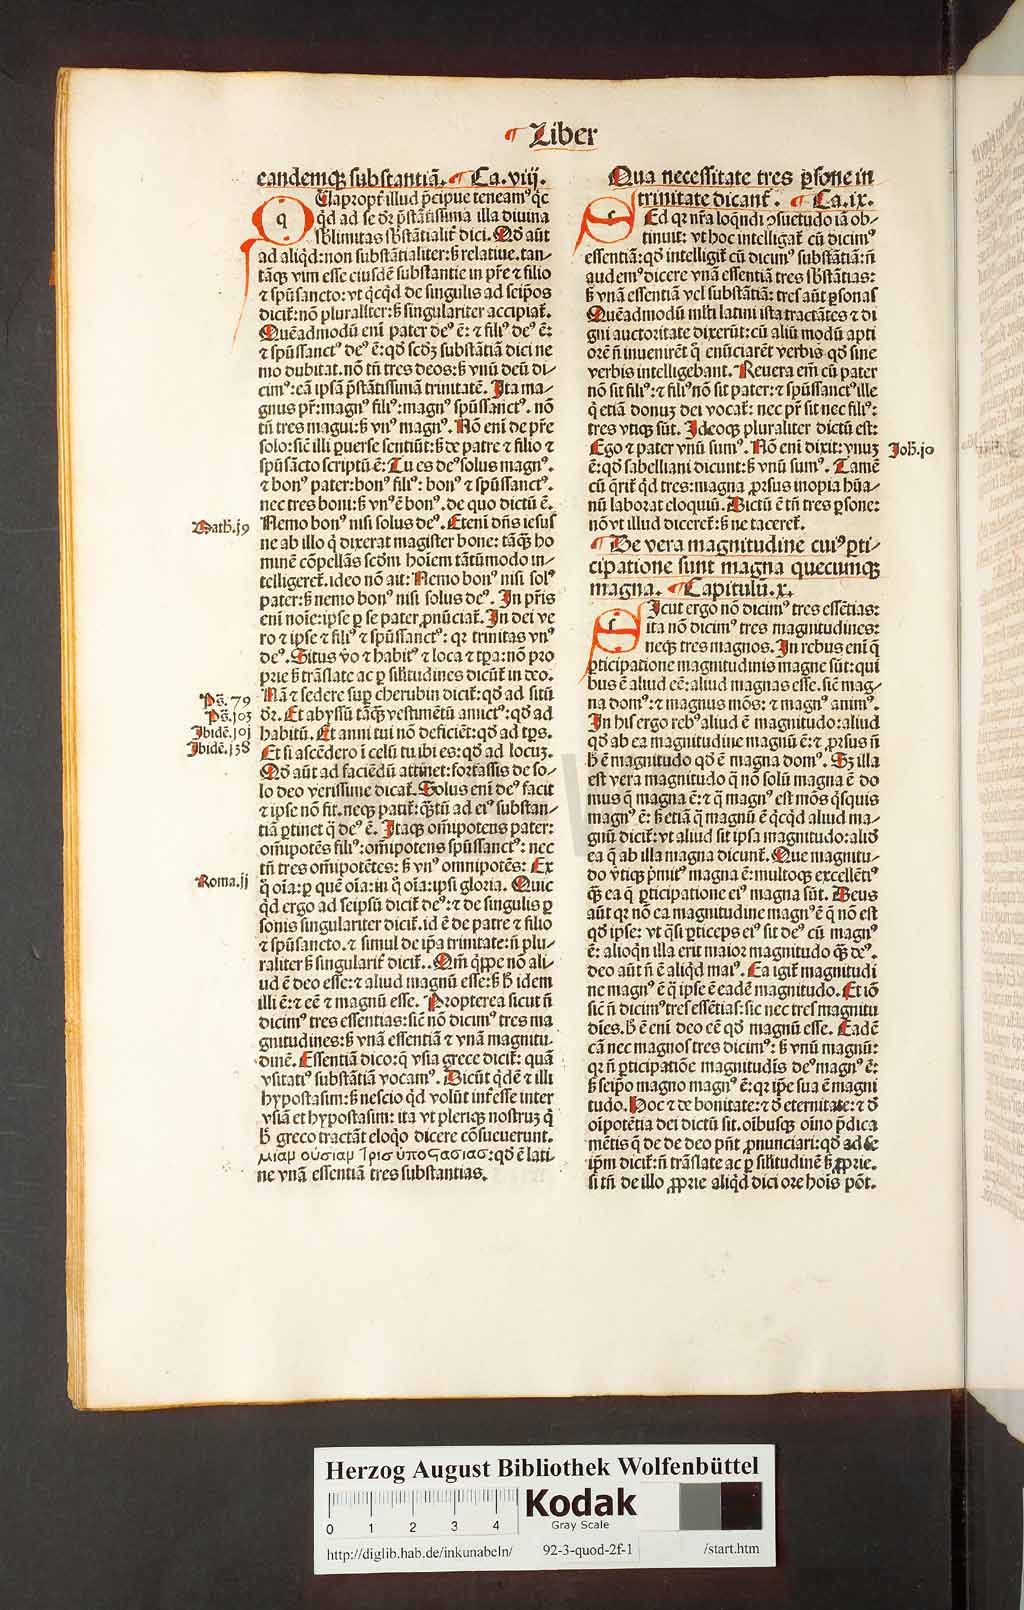 Liber
eandemqꝫ substantiā. Ca.viij.
Quapropt̄ illud p̄cipue teneamꝰ qc̄
qd ad se dr̄ p̄stātissima illa diuina
sblimitas sbstātialit̄ dici. Qd̄ aūt
ad aliqd:non substātialiter:ꝫ relatiue.tan-
tāqꝫ vim esse eiusdē substantie in pr̄e ⁊ filio
⁊ spūsancto:vt qcqd de singulis ad seipos
dicit̄:nō pluraliter:ꝫ singulariter accipiat̄.
Quēadmodū enī pater deꝰ ē:⁊ filiꝰ deꝰ ē:
⁊ spūssanctꝰ deꝰ ē:qd̄ scdꝫ substātiā dici ne
mo dubitat.nō tn̄ tres deos:ꝫ vnū deū di-
cimꝰ:eā ipsā p̄stātissimā trinitatē. Ita ma-
gnus pr̄:magnꝰ filiꝰ:magnꝰ spūssanctꝰ. nō
tn̄ tres magui:ꝫ vnꝰ magnꝰ. Nō eni de pr̄e
solo:sic̄ illi ꝑuerse sentiūt:ꝫ de patre ⁊ filio ⁊
spūsācto scriptū ē: Tu es deꝰ solus magnꝰ.
⁊ bonꝰ pater:bonꝰ filiꝰ: bonꝰ ⁊ spūssanctꝰ.
nec tres boni:ꝫ vnꝰ ē bonꝰ. de quo dictū ē.
Nemo bonꝰ nisi solus deꝰ. Etenī dn̄s iesus
ne ab illo q̄ dixerat magister bone: tāqꝫ ho
minē cōpellās scdm̄ hoīem tātūmodo in-
telligeret̄.ideo nō ait: Nemo bonꝰ nisi solꝰ
pater:ꝫ nemo bonꝰ nisi solus deꝰ. In pr̄is
eni noīe:ipse ꝑ se pater ꝓnūciat̄. In dei ve
ro ⁊ ipse ⁊ filiꝰ ⁊ spūssanctꝰ: qꝛ trinitas vnꝰ
deꝰ. Situs v̄o ⁊ habitꝰ ⁊ loca ⁊ tꝑa:nō pro
prie ꝫ trāslate ac ꝑ silitudines dicūt̄ in deo.
Nā ⁊ sedere suꝑ cherubin dicit̄:qd̄ ad sitū
dr̄. Et abyssū tāqꝫ vestimētū amictꝰ:qd̄ ad
habitū. Et anni tui nō deficiēt:qd̄ ad tp̄s.
Et si ascēdero ī celū tu ibi es:qd̄ ad locuꝫ.
Qd̄ aūt ad faciēdū attinet:fortassis de so-
lo deo verissime dicat̄. Solus enī deꝰ facit
⁊ ipse nō fit.neqꝫ patit̄:qꝫtū ad eiꝰ substan-
tiā ꝑtinet q̄ deꝰ ē. Itaqꝫ om̄ipotens pater:
om̄ipotēs filiꝰ:om̄ipotens spūssanctꝰ: nec
tn̄ tres om̄ipotētes: ꝫ vnꝰ omnipotēs: Ex
q̄ oīa:ꝑ quē oīa:in q̄ oīa:ipsi gloria. Quic
qd ergo ad seipsū dicit̄ deꝰ:⁊ de singulis ꝑ
sonis singulariter dicit̄.id ē de patre ⁊ filio
⁊ spūsancto.⁊ simul de ip̄a trinitate:n̄ plu-
raliter ꝫ singularit̄ dicit̄.. Qm̄ qꝓpe nō ali-
ud ē deo esse:⁊ aliud magnū esse:ꝫ h̄ idem
illi ē:⁊ eē ⁊ magnū esse. Propterea sicut n̄
dicimꝰ tres essentias:sic̄ nō dicimꝰ tres ma
gnitudines:ꝫ vnā essentiā ⁊ vnā magnitu-
dinē. Essentiā dico:q̄ vsia grece dicit̄: quā
vsitatiꝰ substātiā vocamꝰ. Dicūt qdē ⁊ illi
hypostasim:ꝫ nescio qd volūt intēsse inter
vsiā et hypostasim: ita vt pleriqꝫ nostruꝫ q̄
h̄ greco tractāt eloqo dicere cōsueuerunt.
μιαμ ουσιαμ τρισ υποστασιασ:qd̄ ē lati-
ne vnā essentiā tres substantias.
Math.j9
Ps̄.79
Ps̄.jo3
Ibidē.joj
Ibidē.j38
Roma.jj
Qua necessitate tres ꝑsone in
trinitate dicant̄. Ca.ix.
Sed qꝛ nr̄a loqndi ꝯsuetudo iā ob-
tinuit: vt hoc intelligat̄ cū dicimꝰ
essentiā:qd̄ intelligit̄ cū dicimꝰ substātiā:n̄
audemꝰ dicere vnā essentiā tres sbstātias:
ꝫ vnā essentiā vel substātiā: tres aūt ꝑsonas
Quēadmodū ml̄ti latini ista tractātes ⁊ di
gni auctoritate dixerūt:cū aliū modū apti
orē n̄ inuenirēt q̄ enūciarēt verbis qd̄ sine
verbis intelligebant. Reuera em̄ cū pater
nō sit filiꝰ:⁊ filiꝰ nō sit pater:⁊ spūssanctꝰ ille
q̄ etiā donuꝫ dei vocat̄: nec pr̄ sit nec filiꝰ:
tres vtiqꝫ sūt. Ideoqꝫ pluraliter dictū est:
Ego ⁊ pater vnū sumꝰ. Nō eni dixit:vnuꝫ
ē:qd̄ sabelliani dicunt:ꝫ vnū sumꝰ. Tamē
cū q̄rit̄ qd tres:magna ꝓrsus inopia hūa-
nū laborat eloquiū. Dictū ē tn̄ tres ꝑsone:
nō vt illud diceret̄:ꝫ ne taceret̄.
Joh̄.jo
De vera magnitudine cuiꝰ ꝑti-
cipatione sunt magna quecūnqꝫ
magna. Capitulū.x.
Sicut ergo nō dicimꝰ tres essētias:
ita nō dicimꝰ tres magnitudines:
neqꝫ tres magnos. In rebus enī q̄
ꝑticipatione magnitudinis magne sūt:qui
bus ē aliud eē:aliud magnas esse.sic̄ mag-
na domꝰ:⁊ magnus mōs:⁊ magnꝰ animꝰ.
In his ergo rebꝰ aliud ē magnitudo:aliud
qd̄ ab ea magnitudine magnū ē:⁊ ꝓrsus n̄
h̄ ē magnitudo qd̄ ē magna domꝰ. Sꝫ illa
est vera magnitudo q̄ nō solū magna ē do
mus q̄ magna ē:⁊ q̄ magnꝰ est mōs qsquis
magnꝰ ē: ꝫ etiā q̄ magnū ē qcqd aliud ma-
gnū dicit̄:vt aliud sit ipsa magnitudo:aliō
ea q̄ ab illa magna dicunt̄. Que magnitu-
do v̄tiqꝫ p̄mitꝰ magna ē:multoqꝫ excellētiꝰ
qꝫ ea q̄ ꝑticipatione eiꝰ magna sūt. Deus
aūt qꝛ nō ea magnitudine magnꝰ ē q̄ nō est
qd̄ ipse: vt qsi ꝑticeps eiꝰ sit deꝰ cū magnꝰ
ē: alioqn illa erit maior magnitudo qꝫ deꝰ.
deo aūt n̄ ē aliqd maiꝰ. Ea igit̄ magnitudi
ne magnꝰ ē q̄ ipse ē eadē magnitudo. Et iō
sic̄ n̄ dicimꝰ tres essētias:sic nec tres magnitu
dies.h̄ ē enī deo eē qd̄ magnū esse. Eadē
cā nec magnos tres dicimꝰ: ꝫ vnū magnū:
qꝛ n̄ ꝑticipatiōe magnitudis deꝰ magnꝰ ē:
ꝫ seip̄o magno magnꝰ ē:qꝛ ip̄e sua ē magni
tudo. Hoc ⁊ de bonitate:⁊ d̄ eternitate:⁊ d̄
oīpotētia dei dictū sit.oībusqꝫ oīno p̄dica
mētis q̄ de deo pn̄t ꝓnunciari:qd̄ ad se
ip̄m dicit̄:n̄ trāslate ac ꝑ silitudinē ꝫ ꝓprie.
si tn̄ de illo ꝓprie aliqd dici ore hoīs pōt.
Herzog August Bibliothek Wolfenbüttel
0 1 2 3 4
Kodak
Gray Scale
http://diglib.hab.de/inkunabeln/ 92-3-quod-2f-1 /start.htm